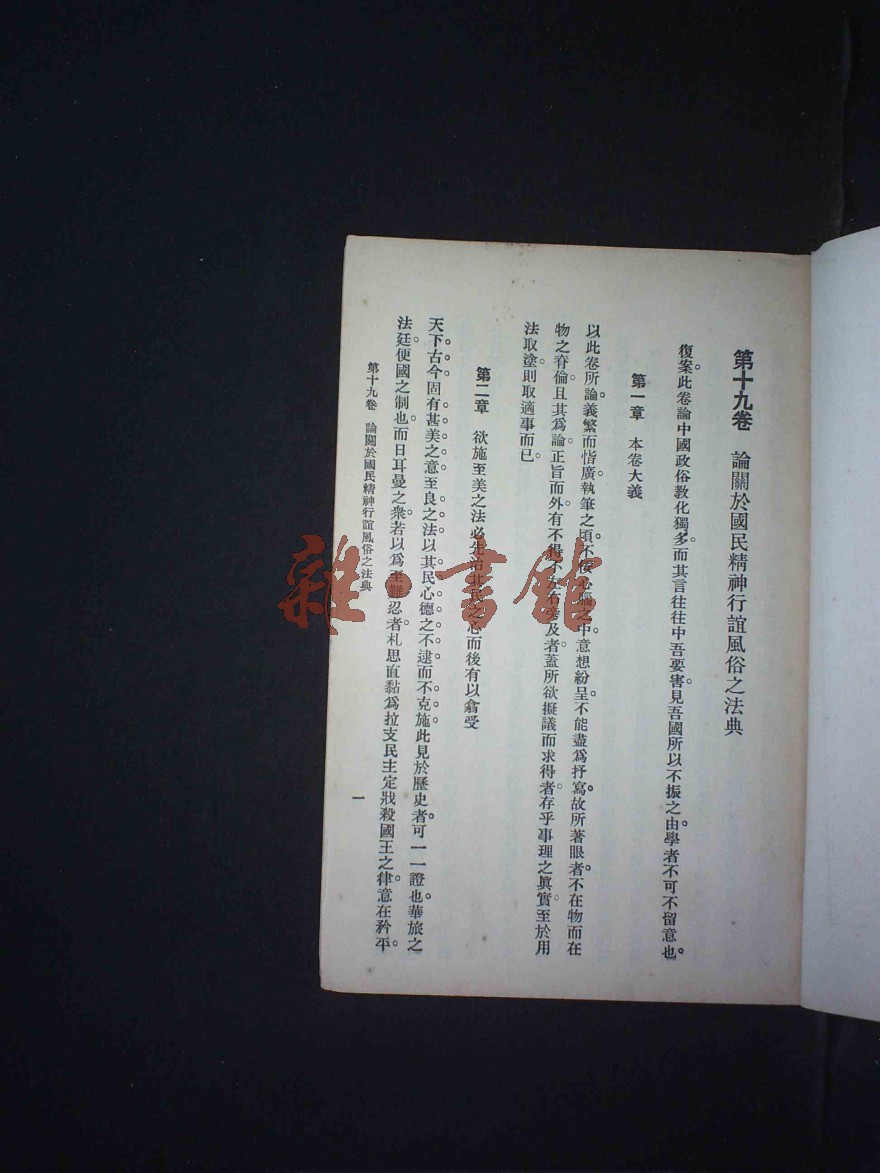 第十九卷 論關於國民精神行誼風俗之法典
復案。此卷論中國政俗教化獨多。而其言往往中吾要害。見吾國所以不振之由。學者不可不留意也。
第一章 本卷大義
以此卷所論義繁而恉廣。執筆之頃。不佞心腦之中。意想紛呈。不能盡爲抒寫。故所著眼者。不在物而在
物之脊倫。且其爲論。正旨而外。有不得不左右旁及者。蓋所欲擬議而求得者。存乎事理之眞實。至於用
法取塗。則取適事而已。
第二章 欲施至美之法必先治其民之心而後有以翕受
天下古今。固有甚美之意。至良之法。以其民心德之不逮。而不克施。此見於歷史者。可一一證也。華旅之
法廷。便國之制也。而日耳曼之衆。若以爲至難忍者。札思直黏爲拉支民主定戕殺國王之律。意在矜平。
第十九卷 論關於國民精神行誼風俗之法典
一
雜·書館